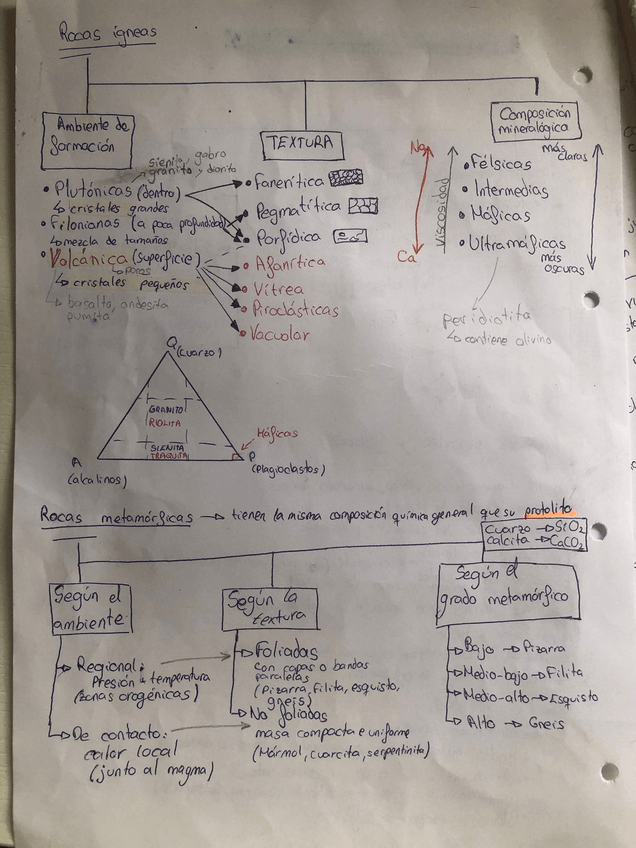 Rocas ígneas
Ambiente de
formación
TEXTURA
Composición
mineralógica
sienita, gabro
granito y diorita
• Plutónicas (dentro)
↳ cristales grandes
• Filonianas (a poca profundidad)
↳ mezcla de tamaños
• Volcánica (superficie)
↳ poros
↳ cristales pequeños
↳ basalto, andesita
pumita
• Fanerítica
• Pegmatítica
• Porfídica
• Afanítica
• Vítrea
• Piroclásticas
• Vacuolar
Na
Ca
Viscosidad
más
claras
• Félsicas
• Intermedias
• Máficas
• Ultramáficas
más
oscuras
peridiotita
↳ contiene olivino
Q (cuarzo)
GRANITO
RIOLITA
SIENITA
TRAQUITA
Máficas
A
(alcalinos)
P
(plagioclastos)
Rocas metamórficas → tienen la misma composición química general que su protolito
Cuarzo → SiO2
calcita → CaCO2
Según el
ambiente
Según la
textura
Según el
grado metamórfico
Regional:
Presión y temperatura
(zonas orogénicas)
De contacto:
calor local
(junto al magma)
Foliadas
con capas o bandas
paralelas
(Pizarra, filita, esquisto,
gneis)
No foliadas
masa compacta e uniforme
(Mármol, cuarcita, serpentinita)
Bajo → Pizarra
Medio-bajo → Filita
Medio-alto → Esquisto
Alto → Gneis